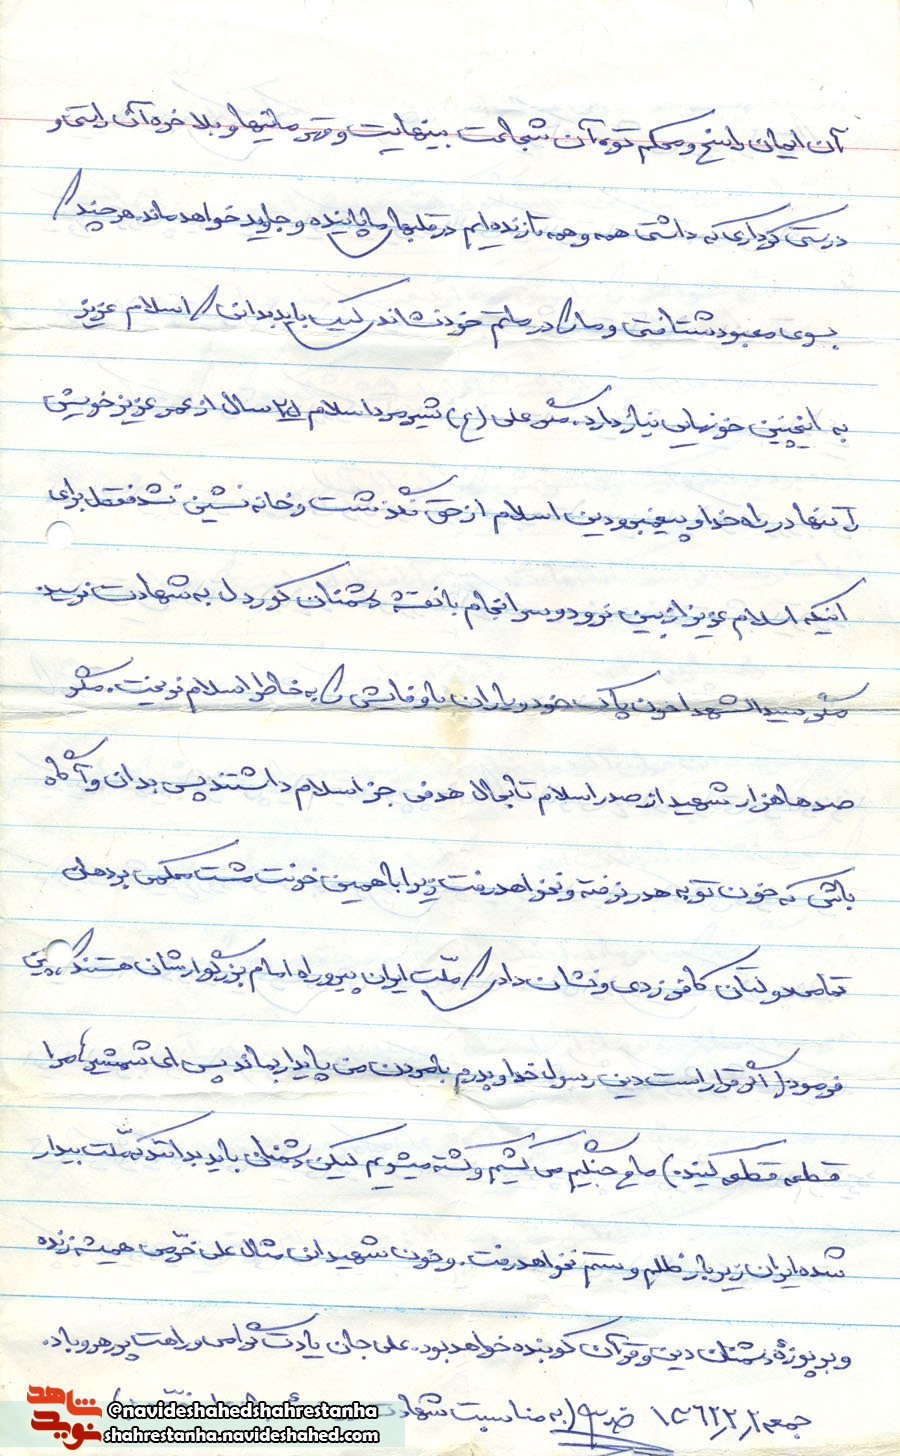 آن ایمان راسخ و محکم تو، آن شجاعت بینهایت و قهرمانیها و بلاخره آن راستی و
درستی کرداری که داشتی همه و همه تا زنده‌ایم در قلبهای ما پاینده و جاوید خواهد ماند، هر چند که
بسوی معبود شتافتی و ما را در ماتم خود نشاندی لیکن باید بدانی که اسلام عزیز
به اینچنین خونهایی نیاز دارد، مگر علی (ع) شیر مرد اسلام ۲۵ سال از عمر عزیز خویش
را تنها در راه خدا و پیغمبر و دین اسلام از حق نگذشت و خانه نشین نشد فقط برای
اینکه اسلام عزیز از بین نرود و سرانجام با نقشه دشمنان کوردل به شهادت نرسید.
مگر سیدالشهدا خون پاک خود و یاران باوفایش را به خاطر اسلام نریخت، مگر
صدها هزار شهید از صدر اسلام تا بحال هدفی جز اسلام داشتند پس بدان و آگاه
باش که خون تو به هدر نرفته و نخواهد رفت زیرا با همین خونت مشت محکمی بر دهان
تمامی دولتهای کافر زدی و نشان دادی که ملّت ایران پیرو راه امام بزرگوارشان هستند که
فرمود: (اگر قرار است دین رسول خدا و پدرم با مردن من پایدار بماند پس ای شمشیرها مرا
قطعه قطعه کنید.) ما می جنگیم می کُشیم و کشته میشویم لیکن دشمنان باید بدانند که ملّت بیدار
شده ایران زیر بار ظلم و ستم نخواهد رفت. و خون شهیدانی مثال علی خرّمی همیشه زنده
و بر پوزهٔ دشمنان دین و قرآن کوبنده خواهد بود. علی جان یادت گرامی و راهت پر رهرو باد.
جمعه ۱۳۶۲/۲/۲ (به مناسبت شهادت
شاهد
نوید
@navideshahedshahrestanha
shahrestanha.navideshahed.com